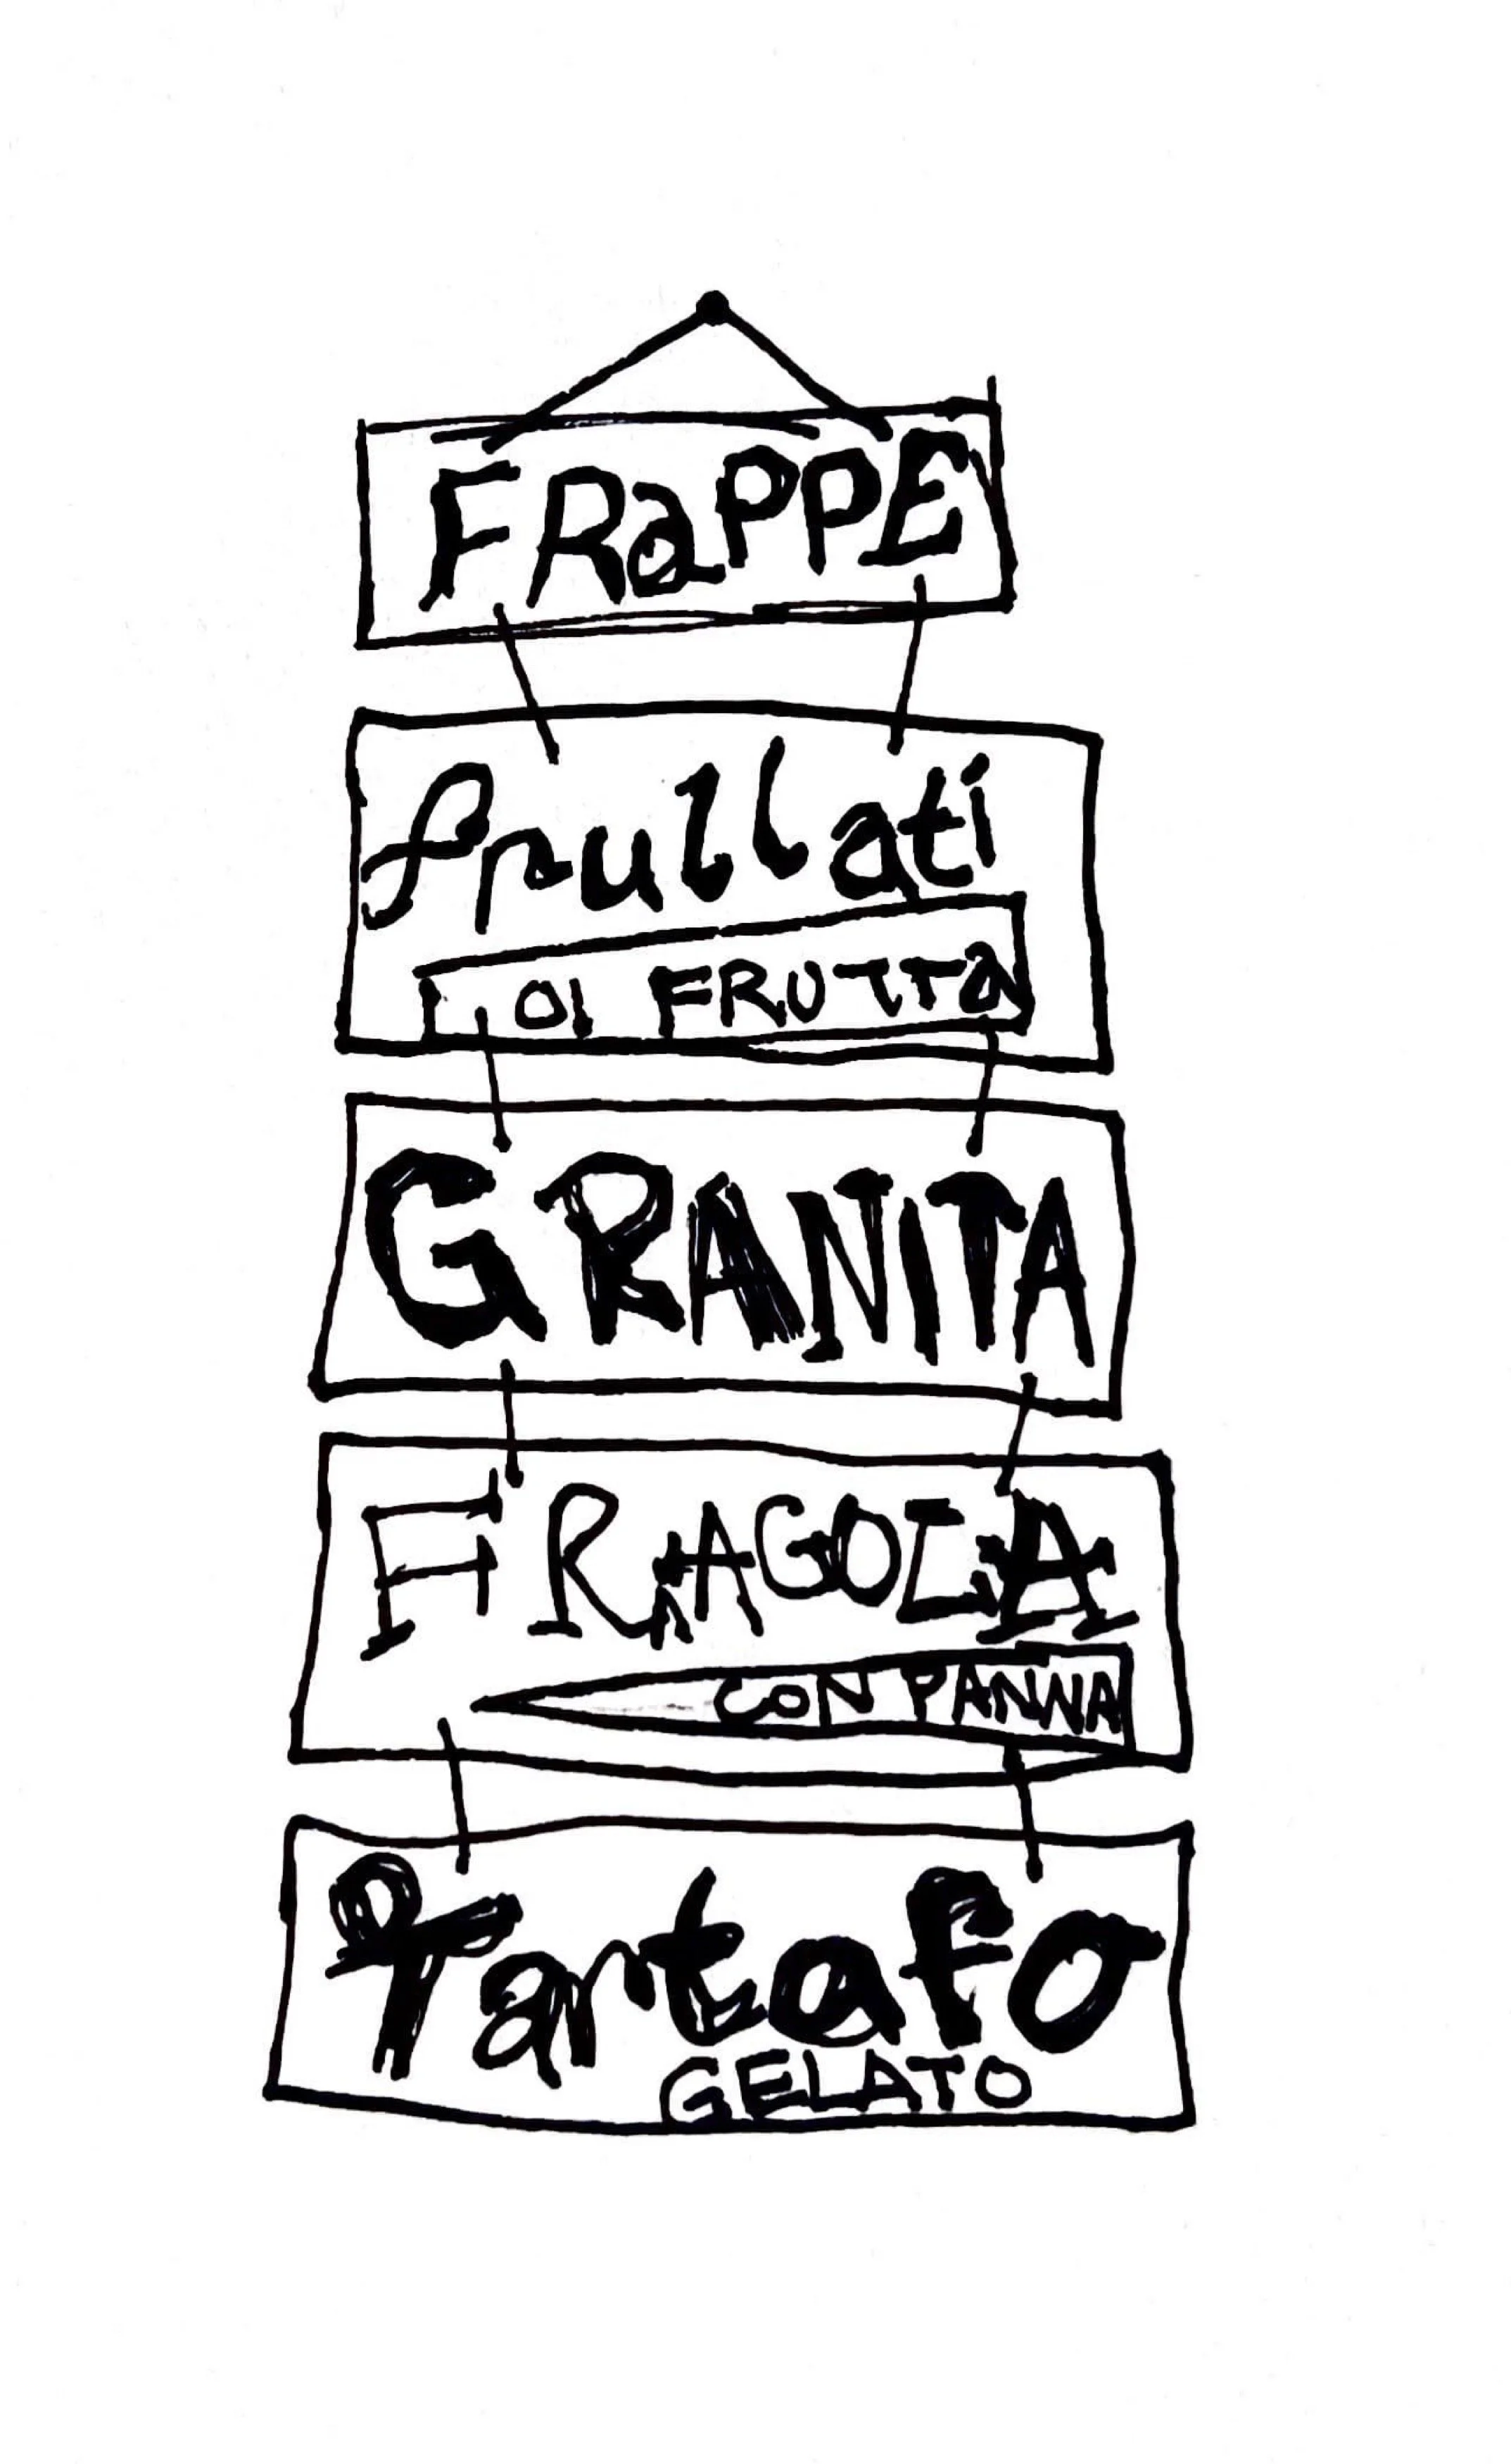 FRaPPE
frullati
DI FRUTTA
GRANITA
FRAGOLA
CON PANNA
Tartafo
GELATO